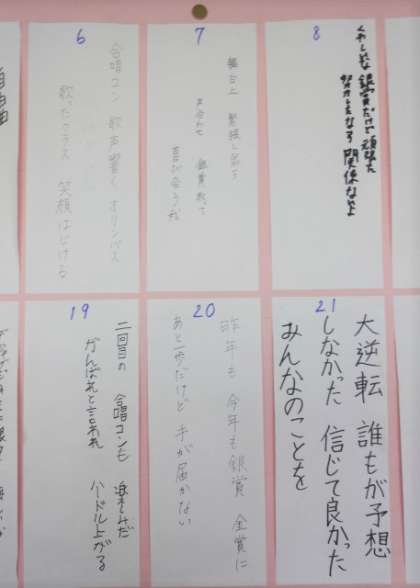 6
合唱コン 歌声響く オリンパス
歌ったクラス 笑顔はじける
7
舞台上 緊張し出す
声合わせ 銀賞取って
喜び合う我
8
くやしいな 銀賞だけど 頑張った
努力したなら 関係ないよ
19
二回目の 合唱コンも 楽しんだ
がんばれと言われ ハードル上がる
20
昨年も 今年も銀賞 金賞に
あと一歩だけど 手が届かない
21
大逆転 誰もが予想
しなかった 信じて良かった
みんなのことを